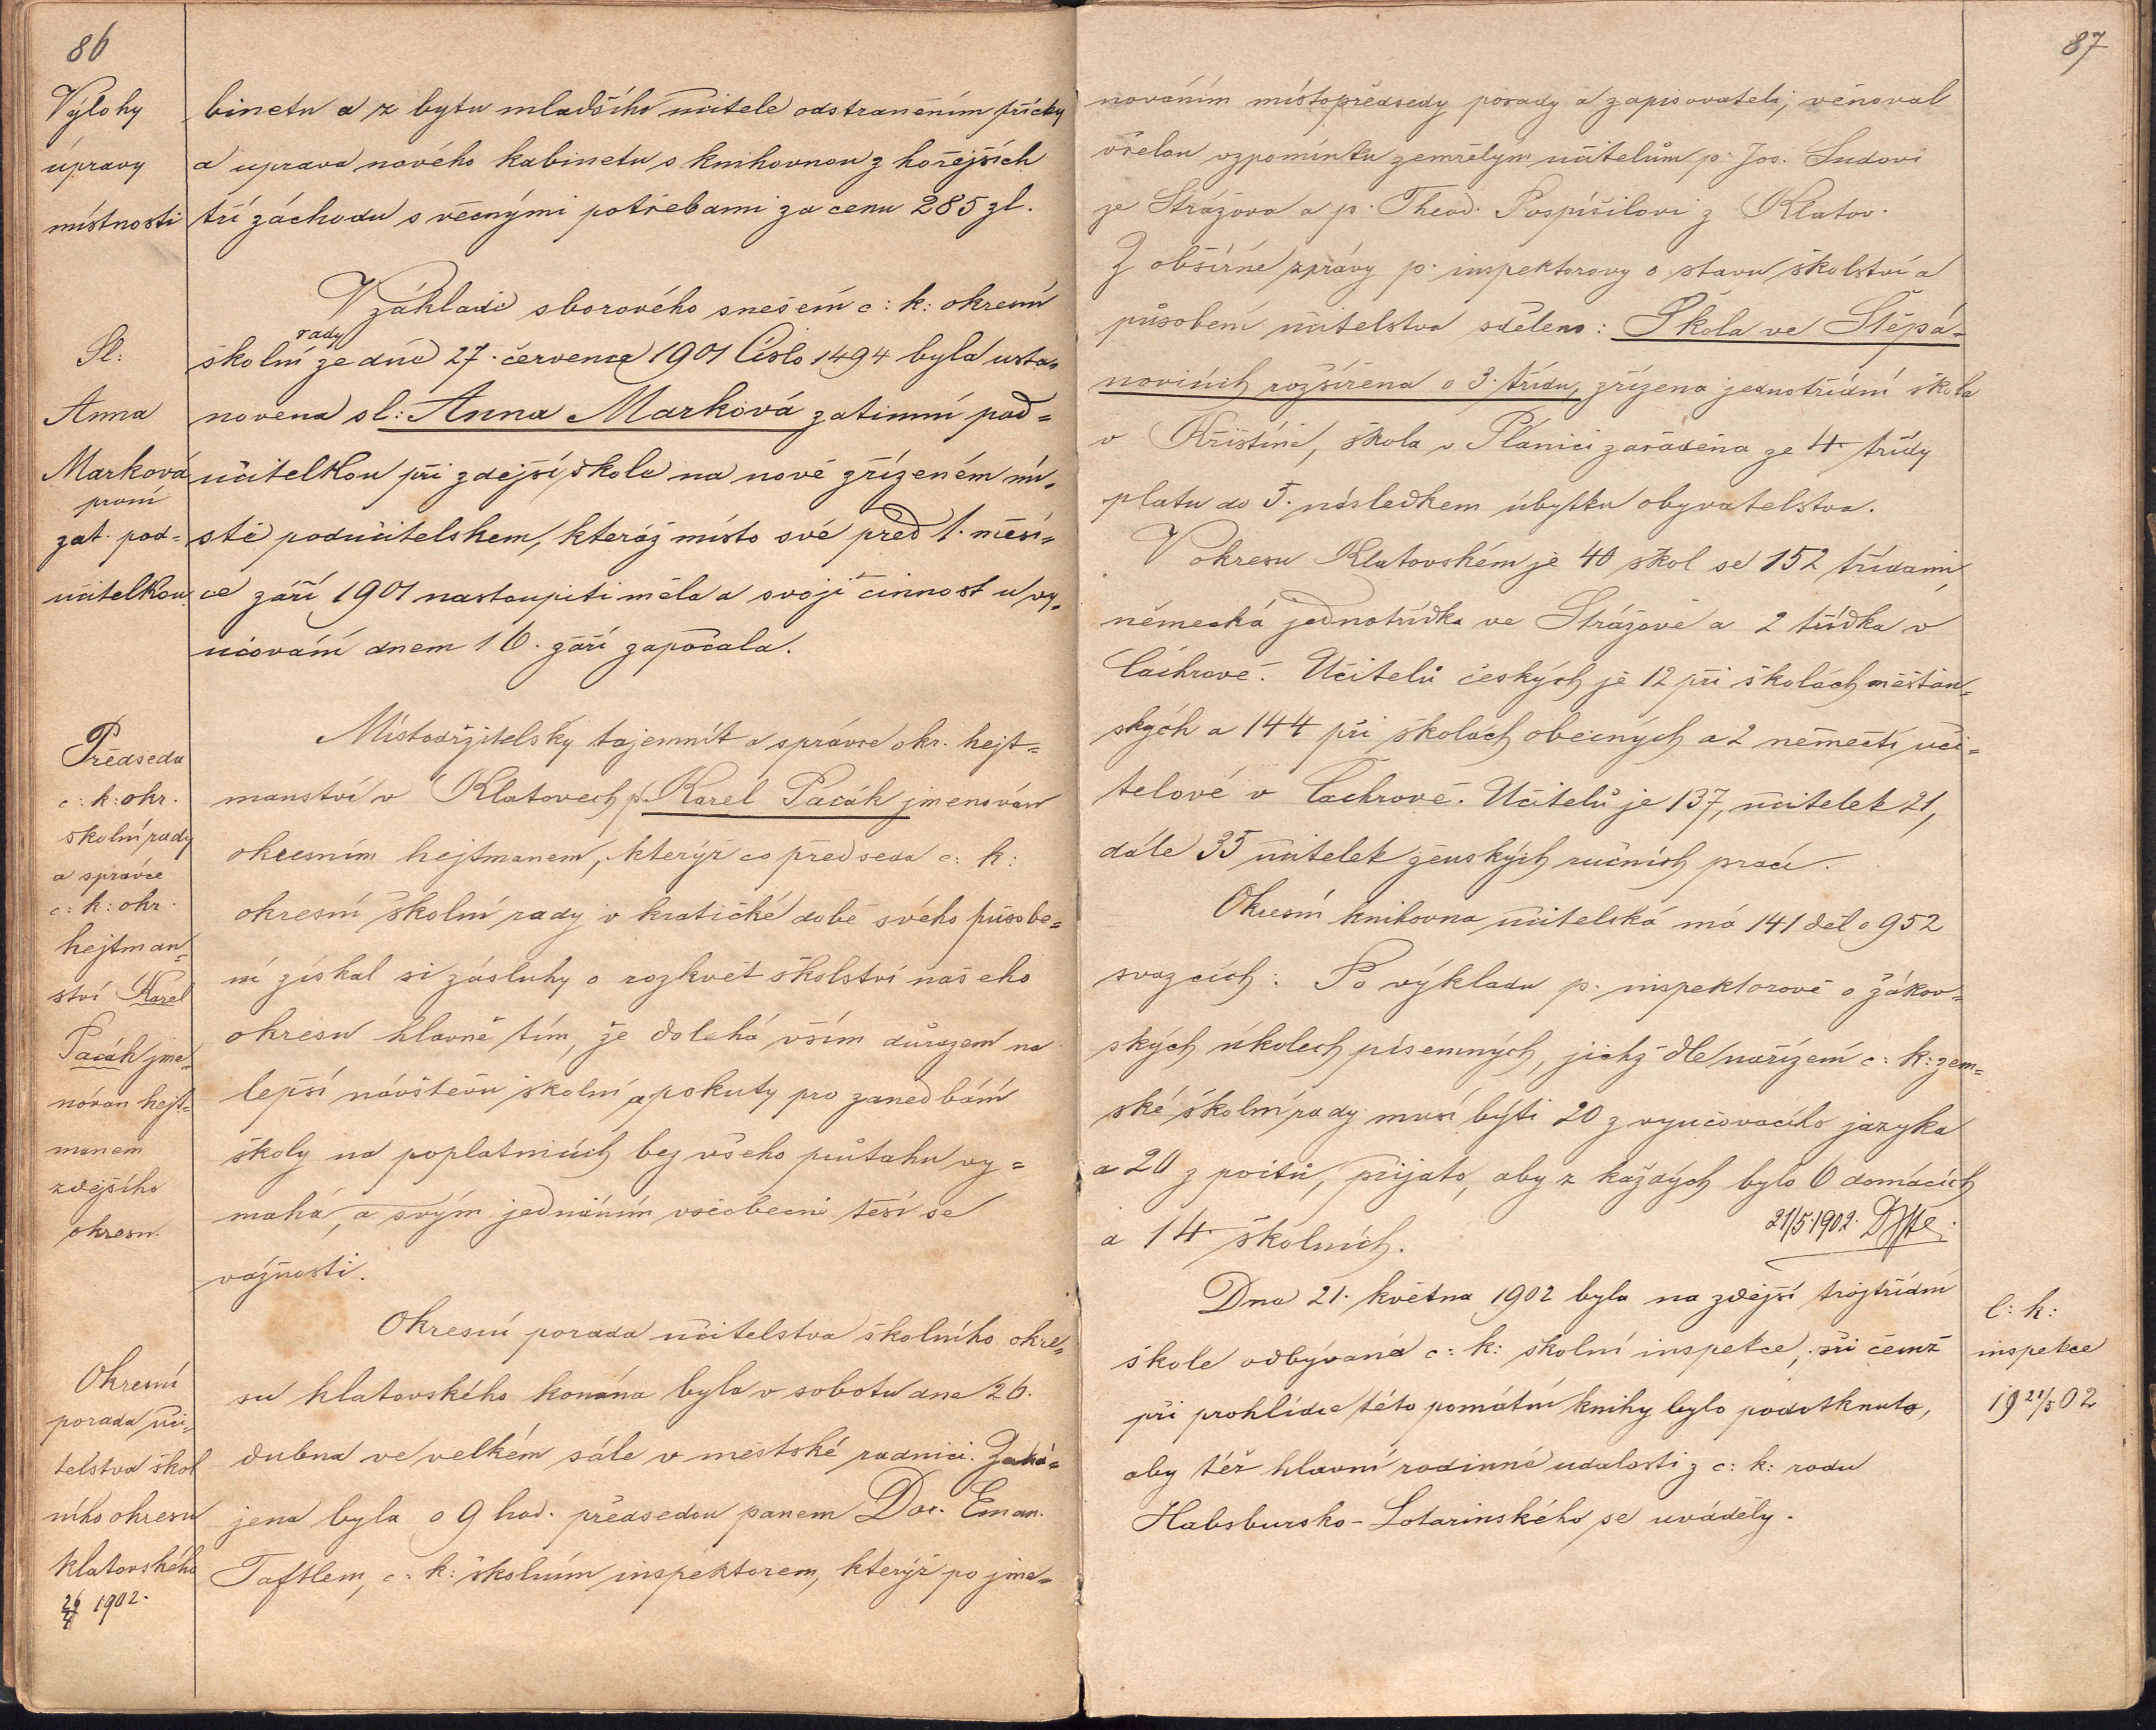 86
Výlohy
úpravy
místnosti
binetu a z bytu mladšího učitele odstraněním příčky
a uprava nového kabinetu s knihovnou z hořejších
tří záchodu s věcnými potřebami za cenu 285 zl.
Sl:
Anna
Marková
první
zat. pod=
učitelkou.
V základě sborového snešení c: k: okresní
rady
školní ze dne 27. července 1901 Číslo 1494 byla usta=
novena sl: Anna Marková zatimní pod=
učitelkou při zdejší škole na nově zřízeném mí=
stě podučitelskem, kteráž místo své před 1. měsí=
ce září 1901 nastoupiti měla a svoji činnost u vy=
učování dnem 16. září započala.
Předseda
c: k: okr.
školní rady
a správce
c: k: okr.
hejtman=
ství Karel
Pacák jme=
nován hejt=
manem
zdejšího
okresu.
Místodržitelský tajemník a správce okr. hejt=
manství v Klatovech p. Karel Pacák jmenován
okresním hejtmanem, kterýž co předseda c: k:
okresní školní rady v kratičké době svého působe=
ní získal si zásluhy o rozkvět školství našeho
okresu hlavně tím, že doléhá vším důrazem na
lepší návštěvu školní a pokuty pro zanedbání
školy na poplatnících bez všeho průtahu vy=
mahá, a svým jednáním všeobecné těší se
vážnosti.
Okresní
porada uči=
telstva škol
ního okresu
klatovského
26/4 1902.
Okresní porada učitelstva školního okre=
su klatovského konána byla v sobotu dne 26.
dubna ve velkém sále v městské radnici. Zahá=
jena byla o 9 hod. předsedou panem Doc. Eman.
Taftlem, c: k: školním inspektorem, kterýž po jme=
87
nováním místopředsedy porady a zapisovatelů, věnoval
vřelou vzpomínku zemřelým učitelům p. Jos. Sudovi
ze Strážova a p. Theod. Pospíšilovi z Klatov.
Z obšírné zprávy p. inspektorovy o stavu školství a
působení učitelstva sděleno: Škola ve Štěpá=
novicích rozšířena o 3. třídu, zřízena jednotřídní škola
v Křištíně, škola v Plánici zařáděna ze 4. třídy
platu do 5. následkem úbytku obyvatelstva.
V okresu Klatovském je 40 škol se 152 třídami,
německá jednotřídka ve Strážově a 2 třídka v
Čachrově. Učitelů českých je 12 při školách měšťan=
ských a 144 při školách obecných a 2 němečtí uči=
telové v Čachrově. Učitelů je 137, učitelek 21,
dále 35 učitelek ženských ručních prací.
Okresní knihovna učitelská má 141 děl o 952
svazcích: Po výkladu p. inspektorově o žákov=
ských úkolech písemných, jichž dle nařízení c: k: zem=
ské školní rady musí býti 20 z vyučovacího jazyka
a 20 z počtů, přijato, aby z každých bylo 6 domácích
a 14 školních.
21/5 1902.
Dne 21. května 1902 byla na zdejší trojtřídní
škole odbývaná c: k: školní inspekce, při čemž
při prohlídce této pamětní knihy bylo podotknuto,
aby též hlavní rodinné udalosti z c: k: rodu
Habsbursko-Lotarinského se uváděly.
C: k:
inspekce
19 21/5 02